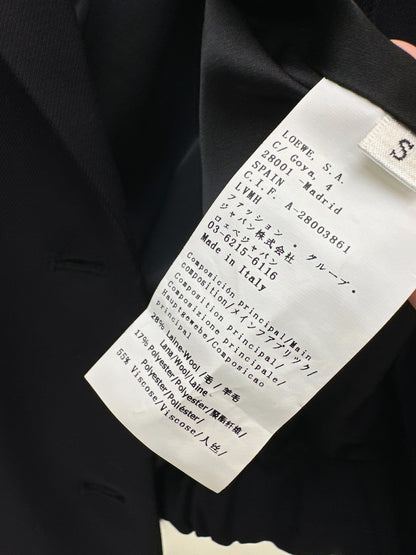 LOEWE, S.A.
C/ Goya, 4
28001 -Madrid
SPAIN
C.I.F. A-28003861
LVMH
ファッション・グループ・
ジャパン株式会社
ロエベジャパン
03-6215-6116
Made in Italy
Composición principal/Main
composition/メインファブリック/
Composition principale/
Composizione principale/
Hauptgewebe/Composicao
principal
28% Laine-Wool /毛/ 羊毛
Lana/Wool/Laine
17% Polyester/Polyester/聚酯纤维/
Polyester/Poliéster/
55% Viscose/Viscose/人丝/
S